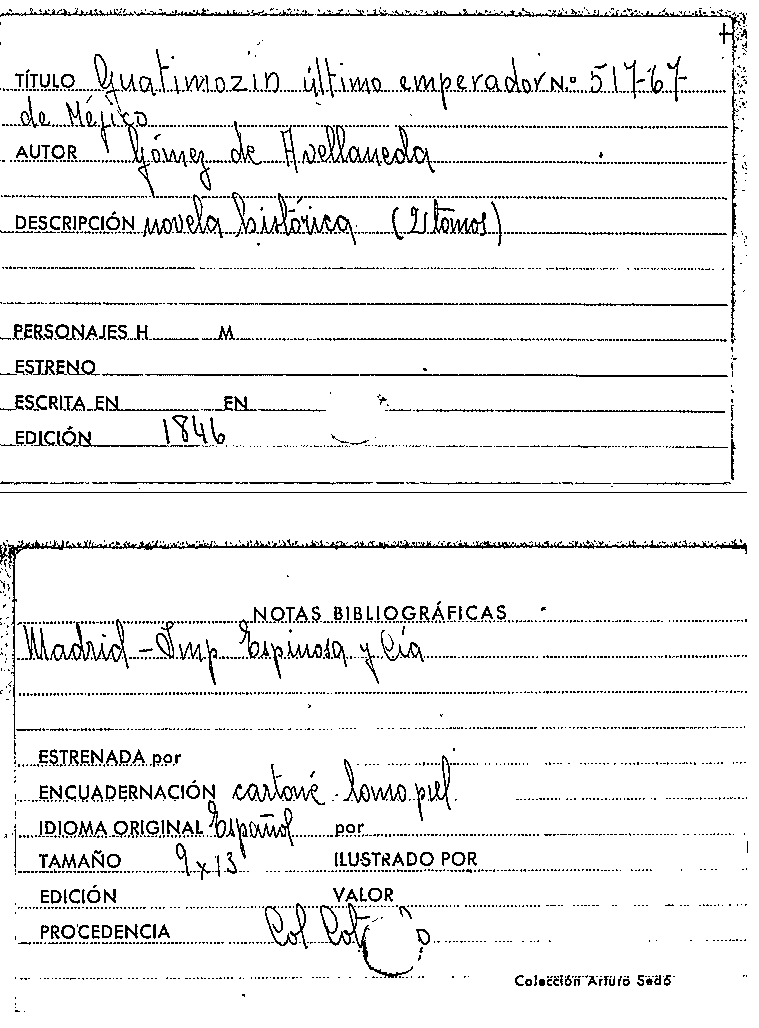 TÍTULO Guatimozin último emperador N.º 517-67-
de Méjico
AUTOR Gómez de Avellaneda
DESCRIPCIÓN novela histórica (2 tomos)
PERSONAJES H M
ESTRENO
ESCRITA EN EN
EDICIÓN 1846
NOTAS BIBLIOGRÁFICAS
Madrid - Imp Espinosa y Cía
ESTRENADA por
ENCUADERNACIÓN cartoné lomo piel
IDIOMA ORIGINAL Español por
TAMAÑO 9x13 ILUSTRADO POR
EDICIÓN VALOR
PROCEDENCIA Col
Colección Arturo Sedó